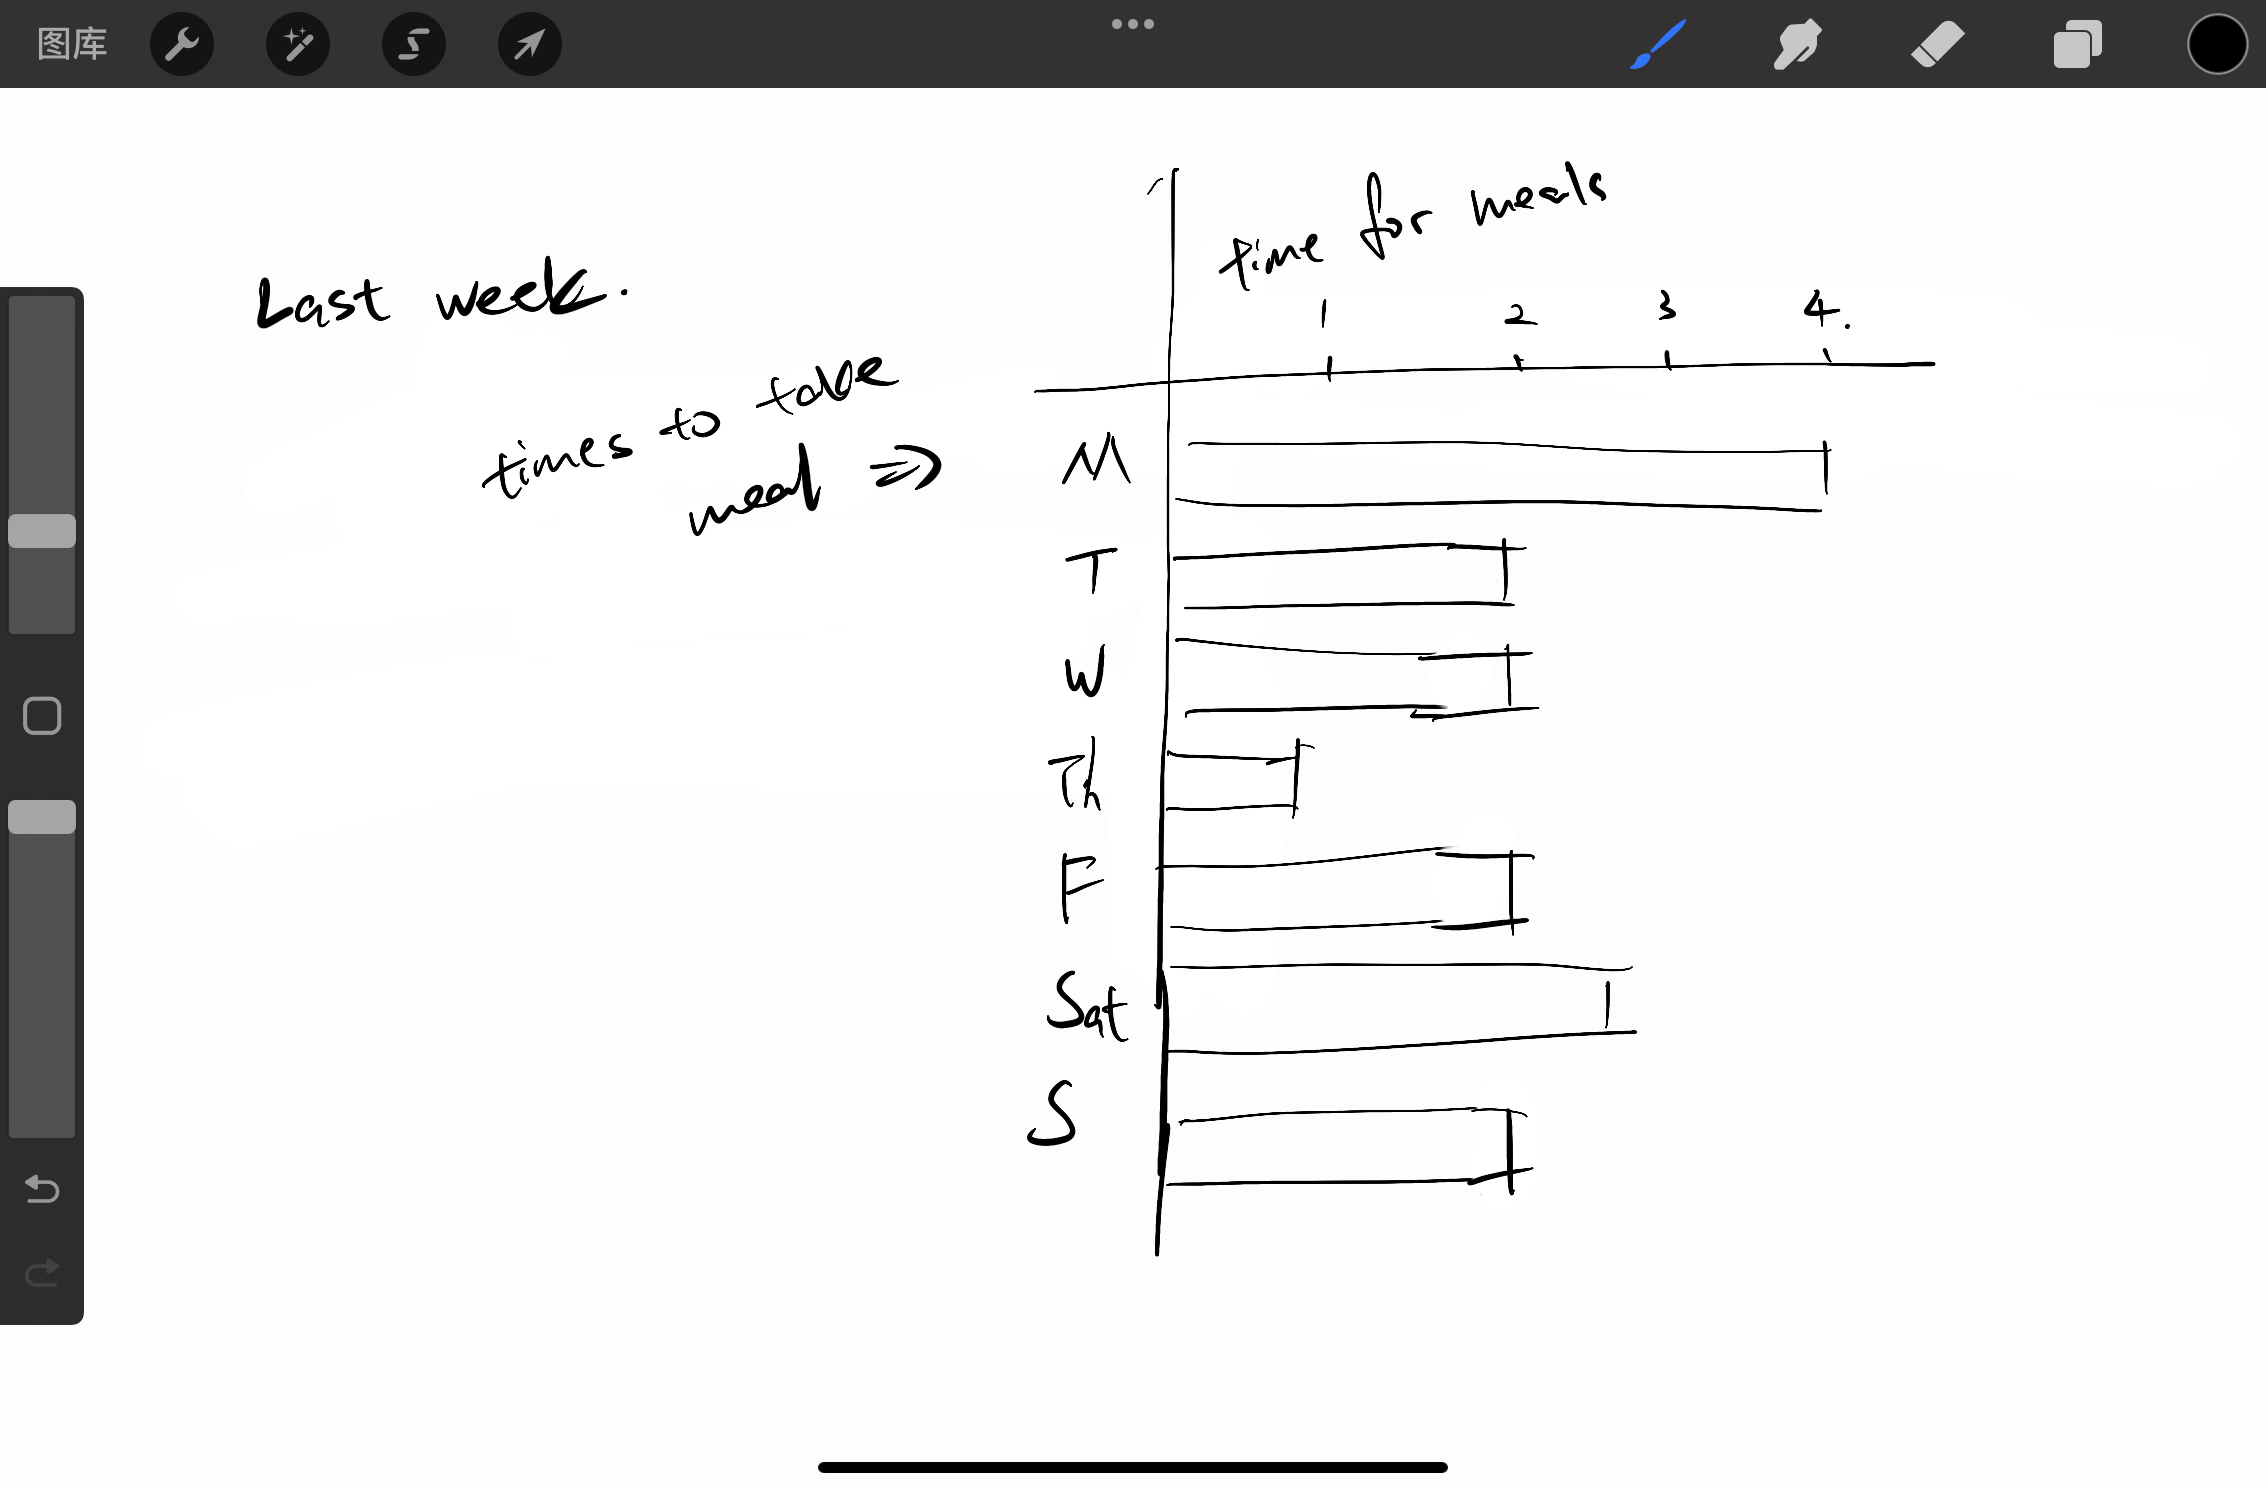 图库
Last week.
times to take
meal ⇒
time for meals
1 2 3 4.
M
T
W
Th
F
Sat
S